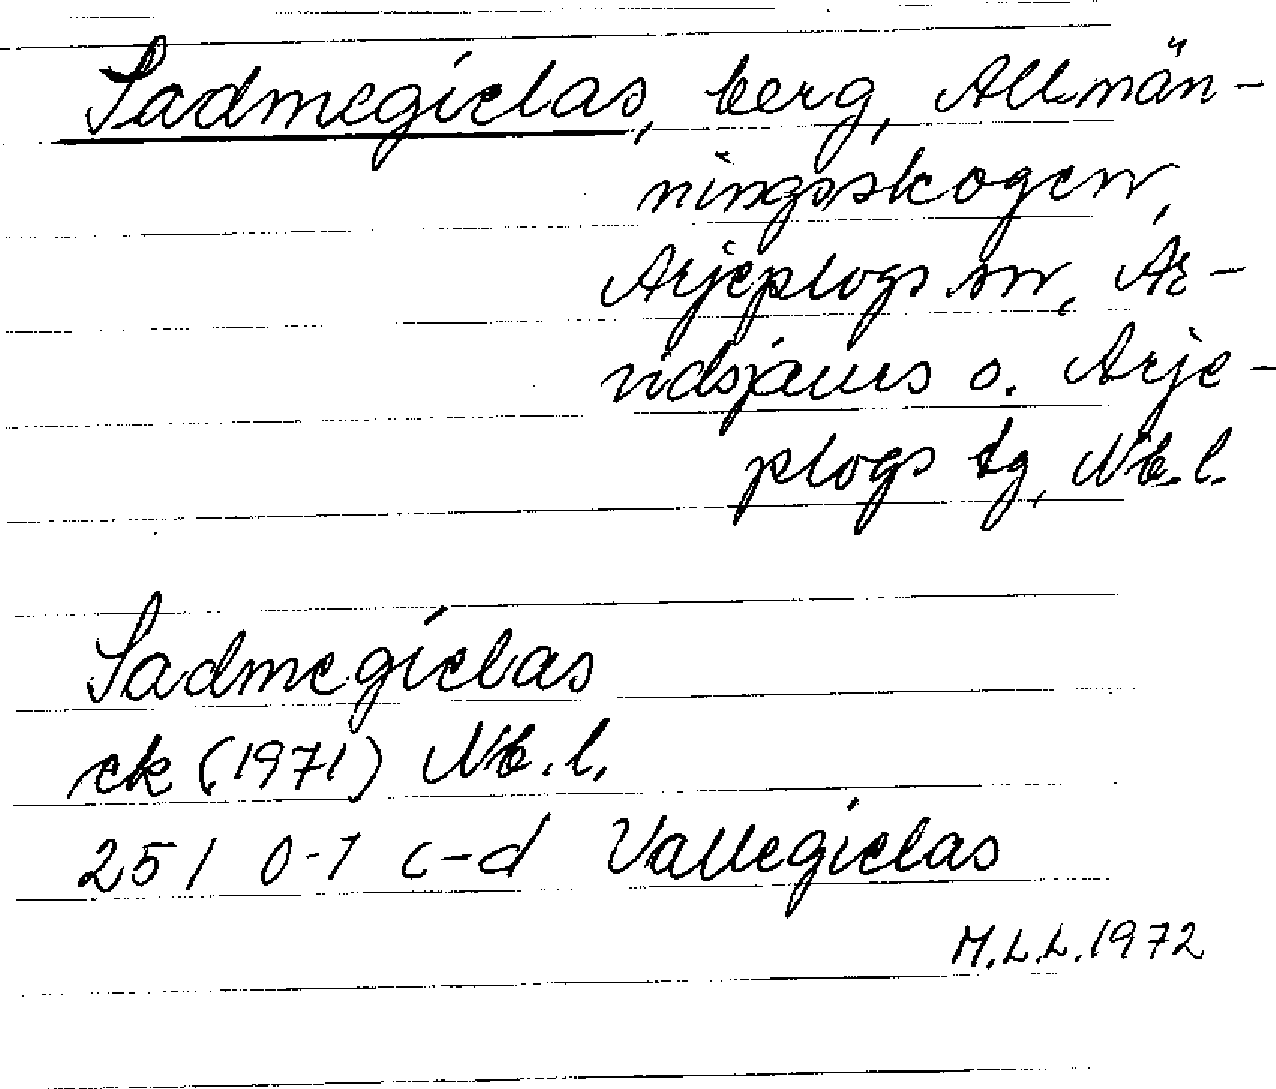 Sadmegielas, berg, Allmän-
ningsskogen,
Arjeplogs sn, Ar-
vidsjaurs o. Arje-
plogs tg, Nb.l.
Sadmegielas
ek (1971) Nb.l.
25 I 0-1 c-d Vallegielas
M.L.L. 1972